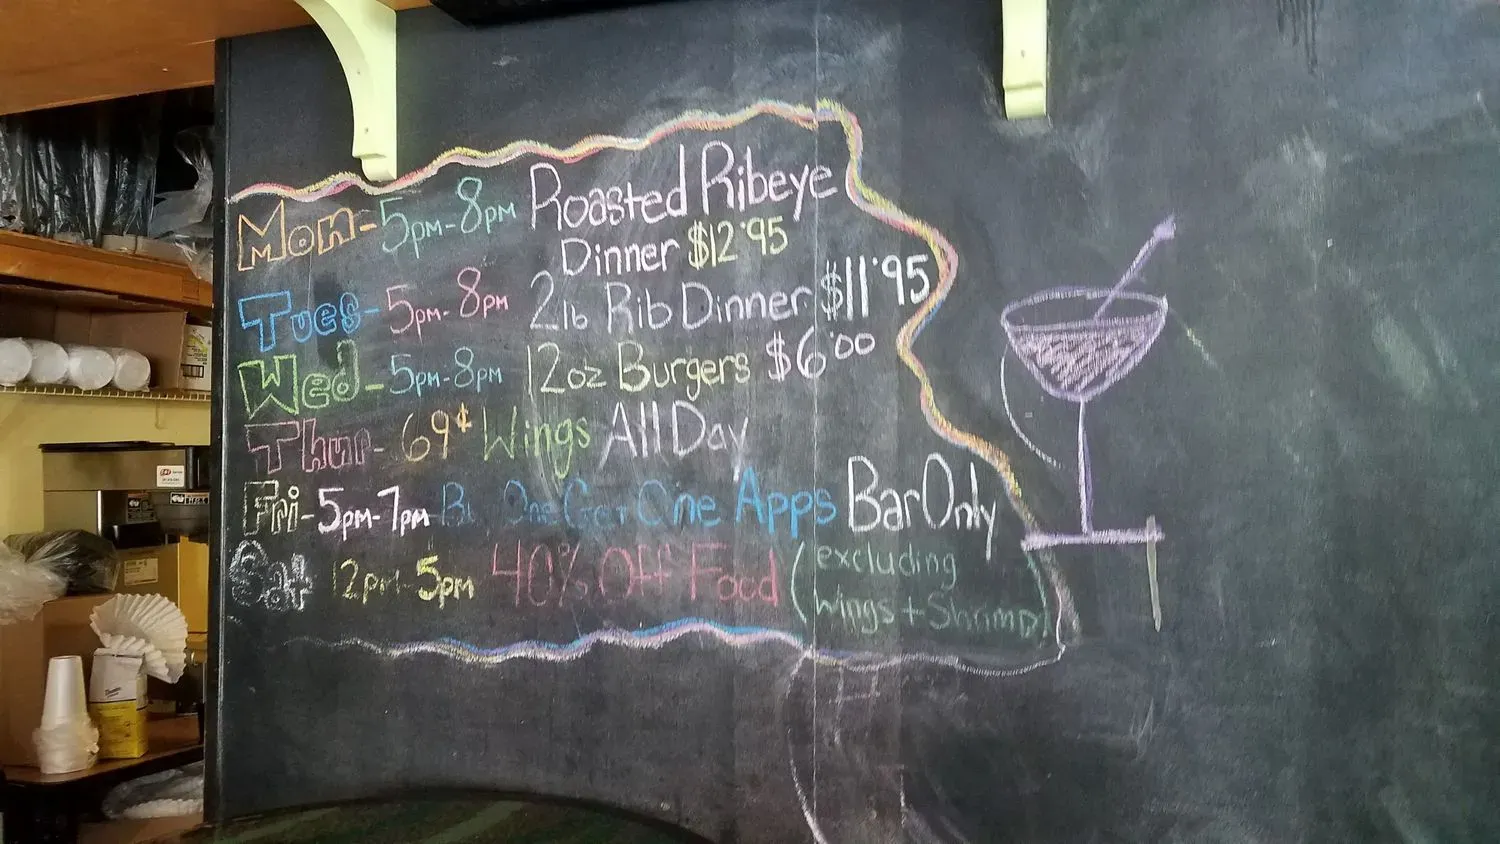 Mon- 5pm-8pm Roasted Ribeye
Dinner $12.95
Tues- 5pm-8pm 2lb Rib Dinner $11.95
Wed- 5pm-8pm 12oz Burgers $6.00
Thur- 69¢ Wings All Day
Fri- 5pm-7pm One Get One Apps Bar Only
Sat 12pm-5pm 40% Off Food (excluding
wings + Shrimp)